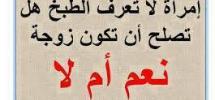 إمرأة لا تعرف الطبخ هل
تصلح أن تكون زوجة
نعم أم لا